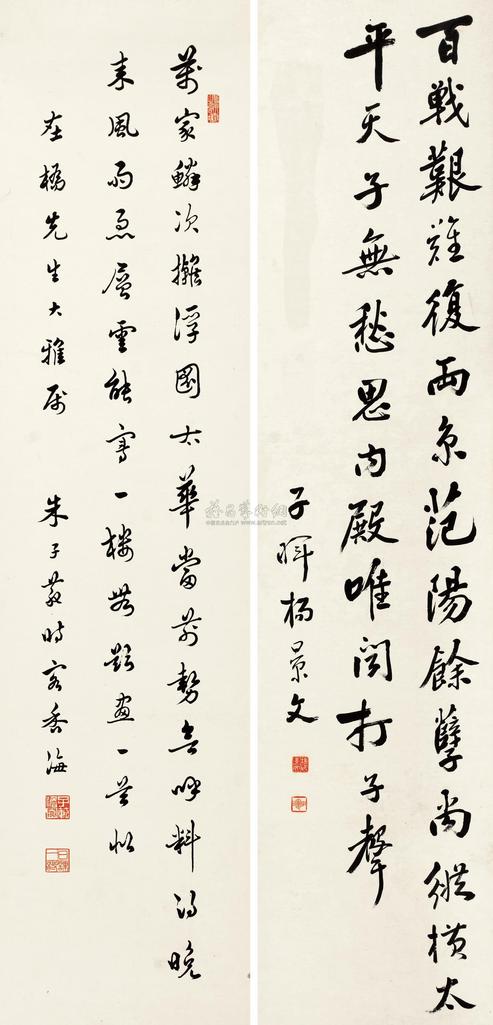 百戰艱難復兩京范陽餘孽尚縱橫太
平天子無愁思內殿唯聞打子聲
子暉楊景文
萬家鱗次擁浮圖太華當前勢欲呼料得晚
來風雨急層雲能寫一樓無題畫一首似
在橋先生大雅屬
朱子範時客香海